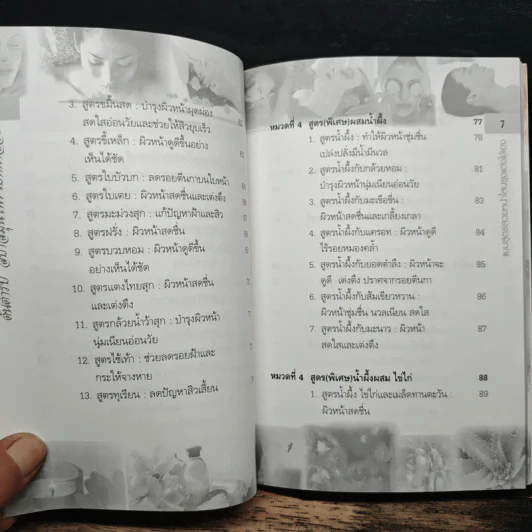 3. สูตรขมิ้นสด : บำรุงผิวหน้าผุดผ่อง
สดใสอ่อนวัยและช่วยให้สิวยุบเร็ว
4. สูตรขี้เหล็ก : ผิวหน้าดูดีขึ้นอย่าง
เห็นได้ชัด
5. สูตรใบบัวบก : ลดรอยตีนกาบนใบหน้า
6. สูตรใบเตย : ผิวหน้าสดชื่นและเต่งตึง
7. สูตรมะม่วงสุก : แก้ปัญหาฝ้าและสิว
8. สูตรฝรั่ง : ผิวหน้าสดชื่น
9. สูตรบวบหอม : ผิวหน้าดูดีขึ้น
อย่างเห็นได้ชัด
10. สูตรแตงไทยสุก : ผิวหน้าสดชื่น
และเต่งตึง
11. สูตรกล้วยน้ำว้าสุก : บำรุงผิวหน้า
นุ่มเนียนอ่อนวัย
12. สูตรไช้เท้า : ช่วยลดรอยฝ้าและ
กระให้จางหาย
13. สูตรทุเรียน : ลดปัญหาสิวเสี้ยน
7
หมวดที่ 4 สูตร(พิเศษ)ผสมน้ำผึ้ง 77
1. สูตรน้ำผึ้ง : ทำให้ผิวหน้าชุ่มชื่น 78
เปล่งปลั่งมีน้ำมีนวล
2. สูตรน้ำผึ้งกับกล้วยหอม : 81
บำรุงผิวหน้านุ่มเนียนอ่อนวัย
3. สูตรน้ำผึ้งกับมะเขือชื่น : 83
ผิวหน้าสดชื่นและเกลี้ยงเกลา
4. สูตรน้ำผึ้งกับแครอท : ผิวหน้าดูดี 84
ไร้รอยหมองคล้ำ
5. สูตรน้ำผึ้งกับยอดตำลึง : ผิวหน้าจะ 85
ดูดี เต่งตึง ปราศจากรอยตีนกา
6. สูตรน้ำผึ้งกับส้มเขียวหวาน : 86
ผิวหน้าชุ่มชื่น นวลเนียน สดใส
7. สูตรน้ำผึ้งกับมะนาว : ผิวหน้า 87
สดใสและเต่งตึง
หมวดที่ 4 สูตร(พิเศษ)น้ำผึ้งผสม ไข่ไก่ 88
1. สูตรน้ำผึ้ง ไข่ไก่และเมล็ดทานตะวัน : 89
ผิวหน้าสดชื่น